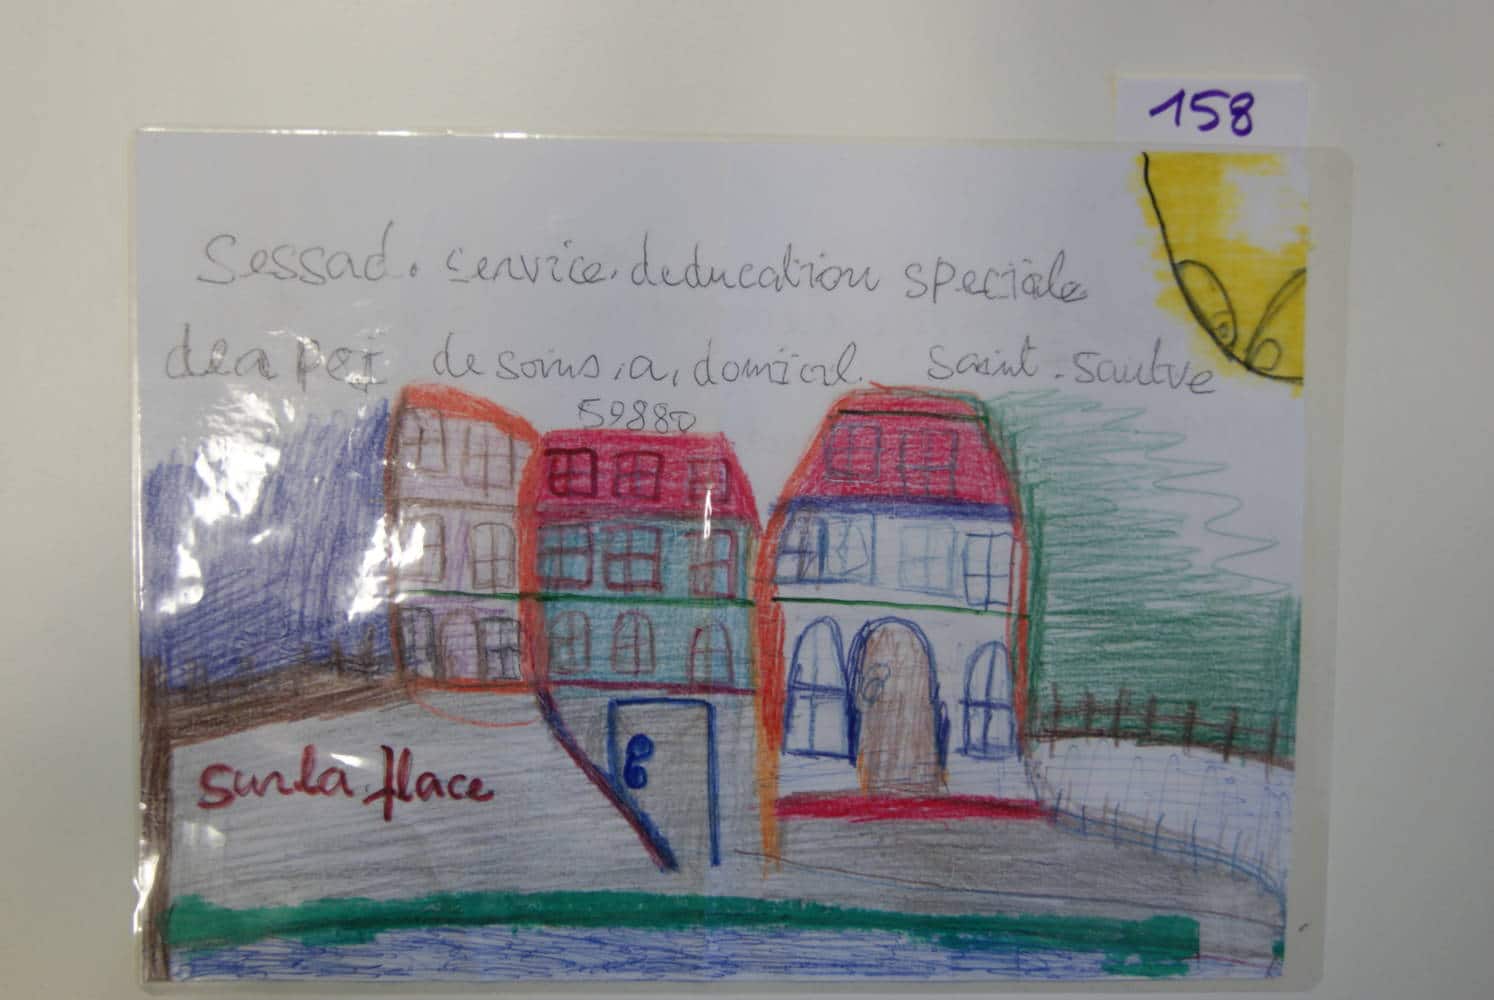 158
Sessad. service. deducation speciale
de soins, a, domicil. Saint-Sautve
59880
sur la place